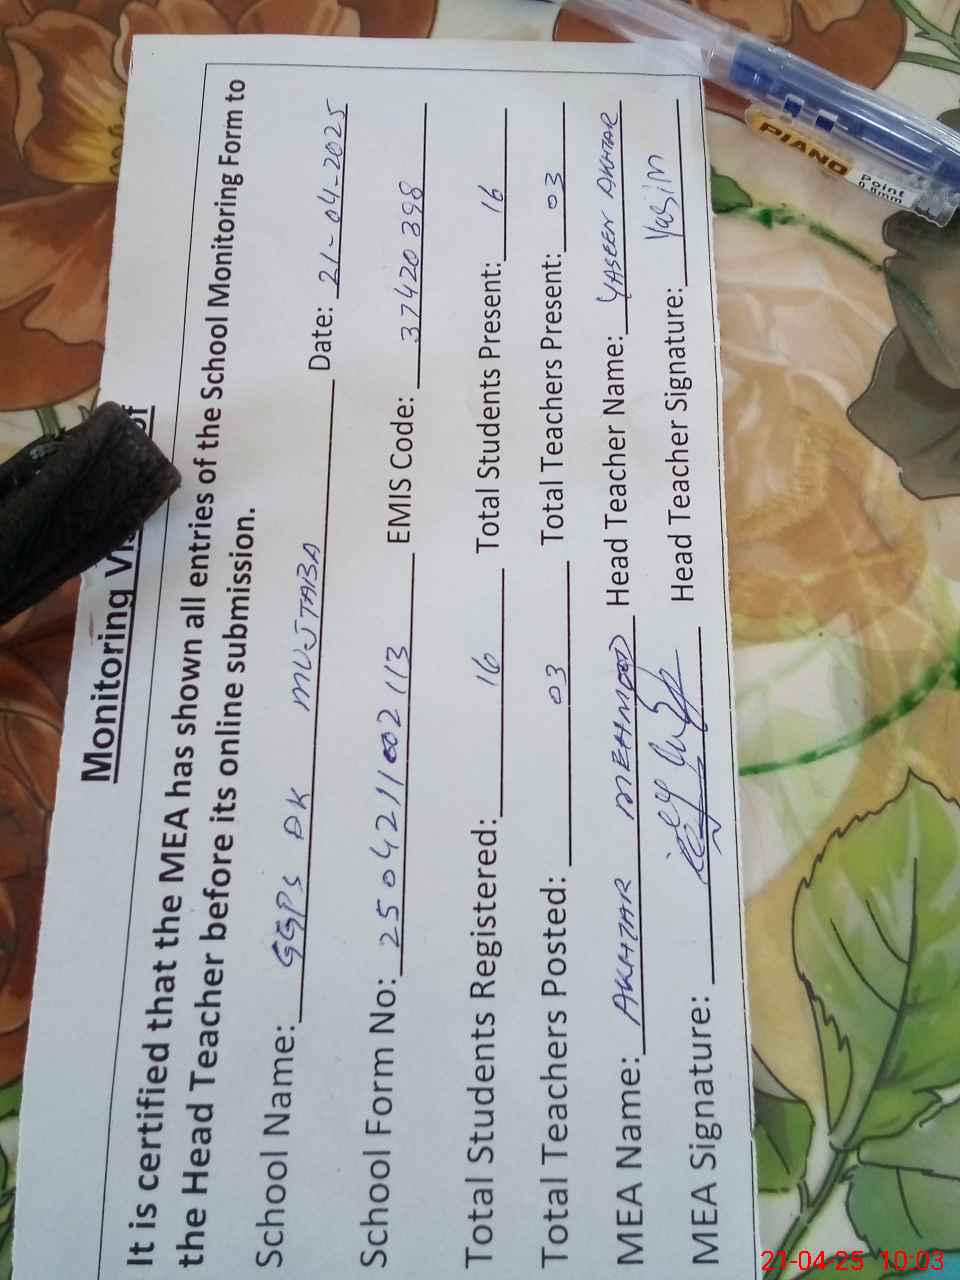 Monitoring Vis of
It is certified that the MEA has shown all entries of the School Monitoring Form to
the Head Teacher before its online submission.
School Name: GGPS DK MUJTABA Date: 21-04-2025
School Form No: 2504211002113 EMIS Code: 37420398
Total Students Registered: 16 Total Students Present: 16
Total Teachers Posted: 03 Total Teachers Present: 03
MEA Name: AKHTAR MEHMOOD Head Teacher Name: YASEEN AKHTAR
MEA Signature: Head Teacher Signature: Yasin
PIANO
Point
0.8mm
21-04-25 10:03